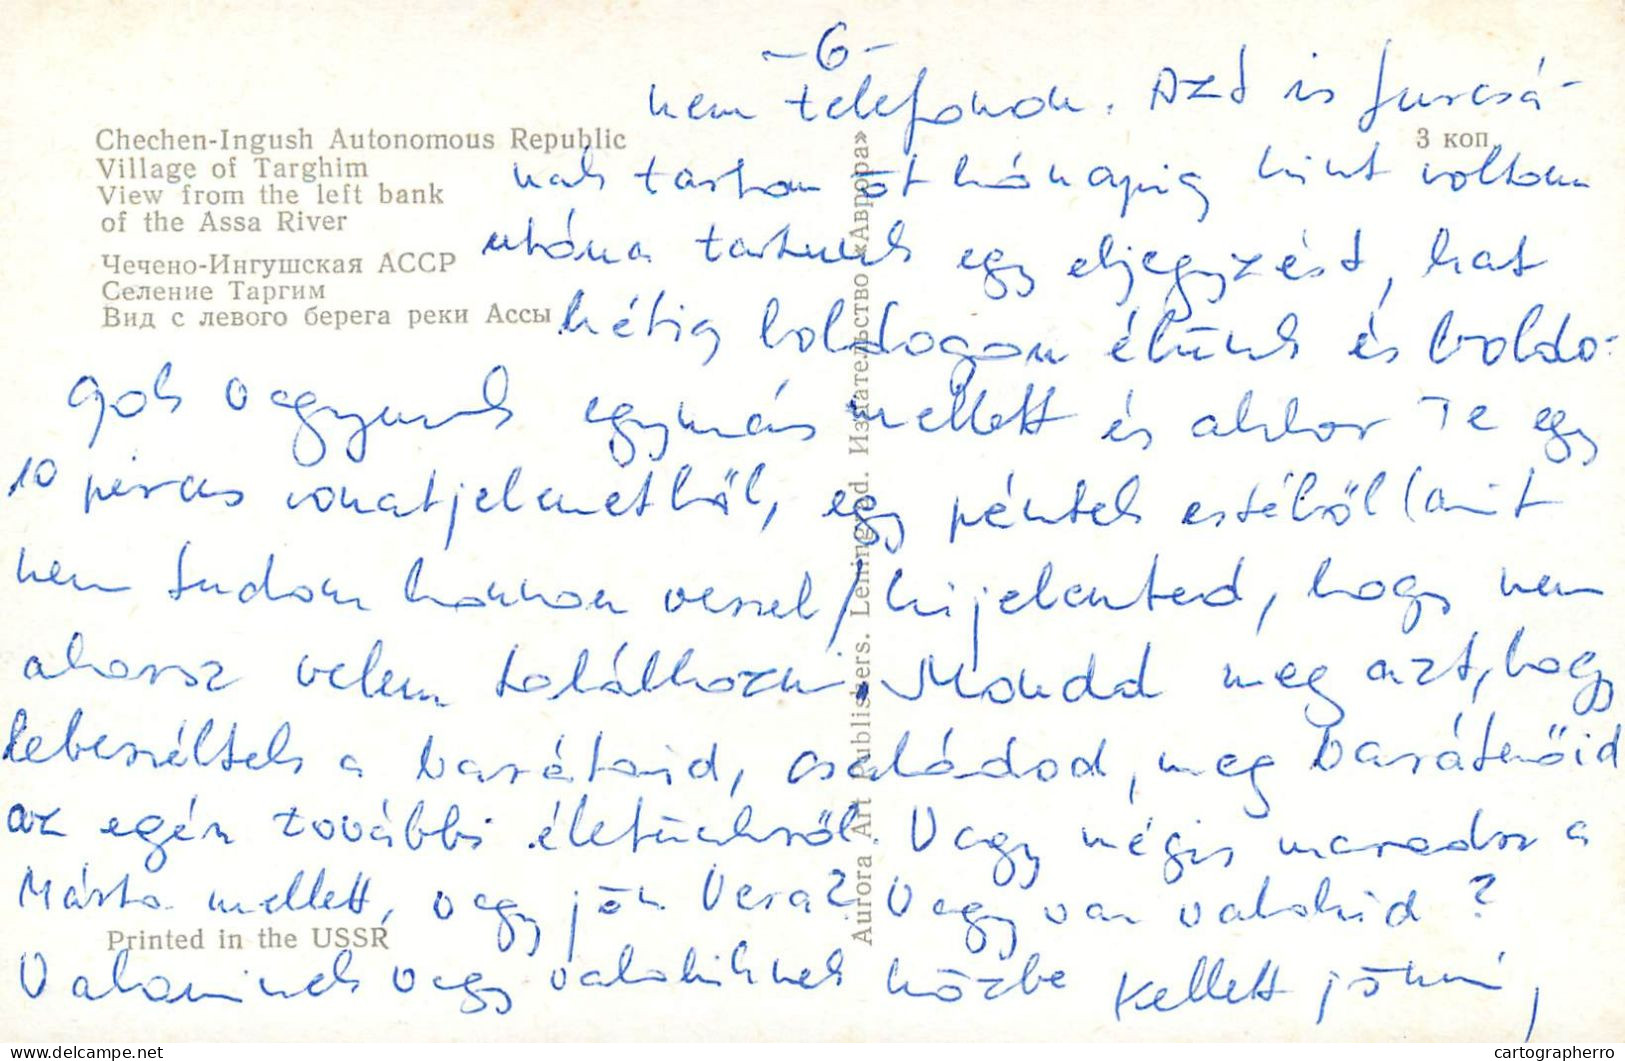 -6-
nem telefonon. Azt is furcsá-
nak tartom öt hónapig kint voltam
utána tartunk egy eljegyzést, hat
hétig boldogan élünk és boldo-
gok vagyunk egymás mellett és akkor Te egy
10 perces vonatjelenetből, egy péntek estéből (amit
nem tudom honnan veszel) kijelented, hogy nem
akarsz velem találkozni. Mondd meg azt, hogy
lebeszéltek a barátaid, családod, meg barátnőid
az egész további életünkről. Vagy mégis maradsz a
Márta mellett, vagy jön Vera? Vagy van valakid?
Valaminek vagy valakiknek közbe kellett jönni,
Chechen-Ingush Autonomous Republic
Village of Targhim
View from the left bank
of the Assa River
Чечено-Ингушская АССР
Селение Таргим
Вид с левого берега реки Ассы
3 коп.
Aurora Art Publishers. Leningrad. Издательство «Аврора»
Printed in the USSR
cartographerro